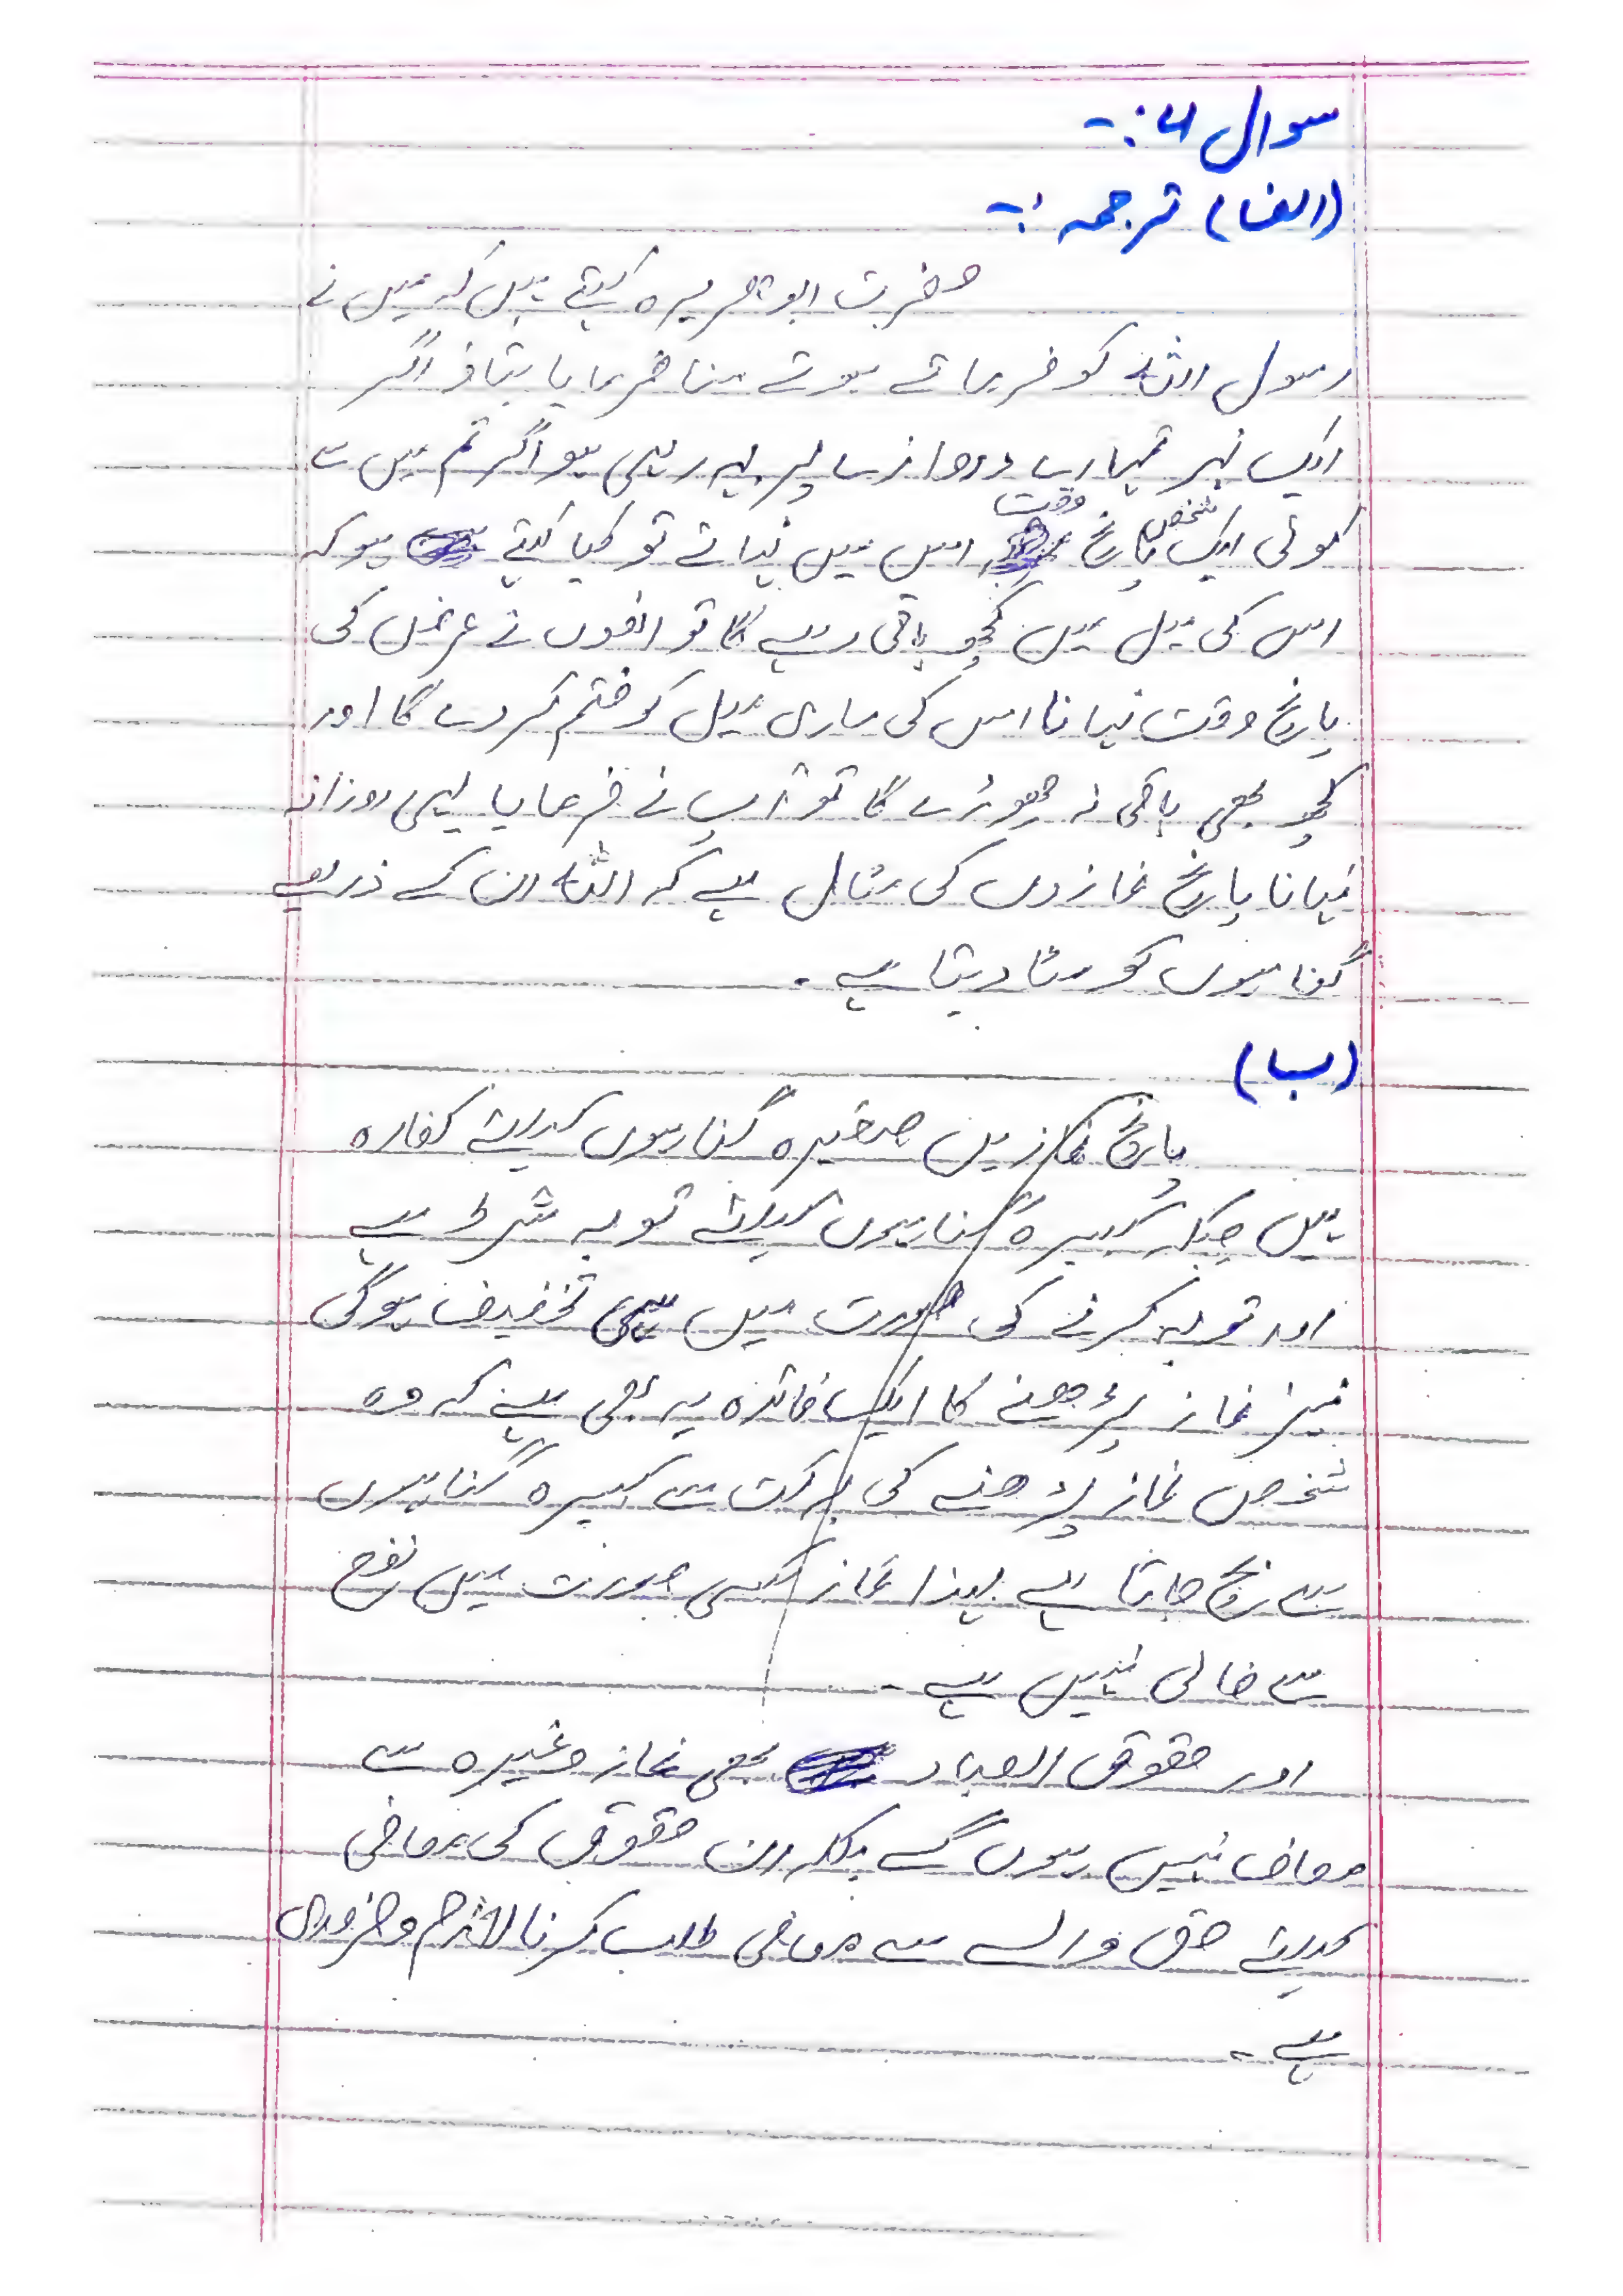 سوال ۴:-
(الف) ترجمہ:-
حضرت ابو ھریرہ کہتے ہیں کہ میں نے
رسول اللہ کو فرماتے ہوئے سنا فرمایا بتاؤ اگر
ایک نہر تمہارے دروازے پر بہہ رہی ہو اگر تم میں سے
کوئی ایک شخص پانچ وقت اس میں نہائے تو کیا کہتے ہو کہ
اس کی میل میں کچھ باقی رہے گا تو انھوں نے عرض کی
پانچ وقت نہانا اس کی ساری میل کو ختم کر دے گا اور
کچھ بھی باقی نہ چھوڑے گا تو آپ نے فرمایا یہی روزانہ
نہانا پانچ نمازوں کی مثال ہے کہ اللہ ان کے ذریعے
گناہوں کو مٹا دیتا ہے ۔
(ب)
پانچ نمازیں صغیرہ گناہوں کیلئے کفارہ
ہیں جبکہ کبیرہ گناہوں کیلئے توبہ شرط ہے
اور توبہ کرنے کی صورت میں ہی تخفیف ہوگی
نیز نماز پڑھنے کا ایک فائدہ یہ بھی ہے کہ وہ
شخص نماز پڑھنے کی برکت سے کبیرہ گناہوں
سے بچ جاتا ہے لہذا نماز کسی صورت میں نفع
سے خالی نہیں ہے ۔
اور حقوق العباد بھی نماز وغیرہ سے
معاف نہیں ہوں گے بلکہ ان حقوق کی معافی
کیلئے حق والے سے معافی طلب کرنا لازم و ضروری
ہے ۔